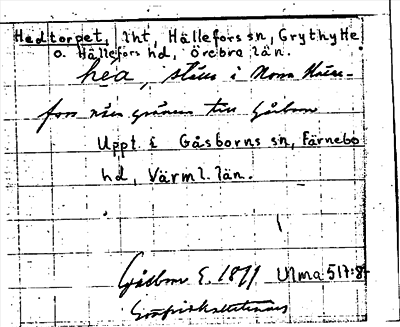 Hedtorpet, lht, Hällefors sn, Grythytte
o. Hällefors hd, Örebro län.
hea, i Norra
fors nära gränsen till Gåsborn
Uppt. i Gåsborns sn, Färnebo
hd, Värml. län.
Gåsborn 1877 Ulma 517:8